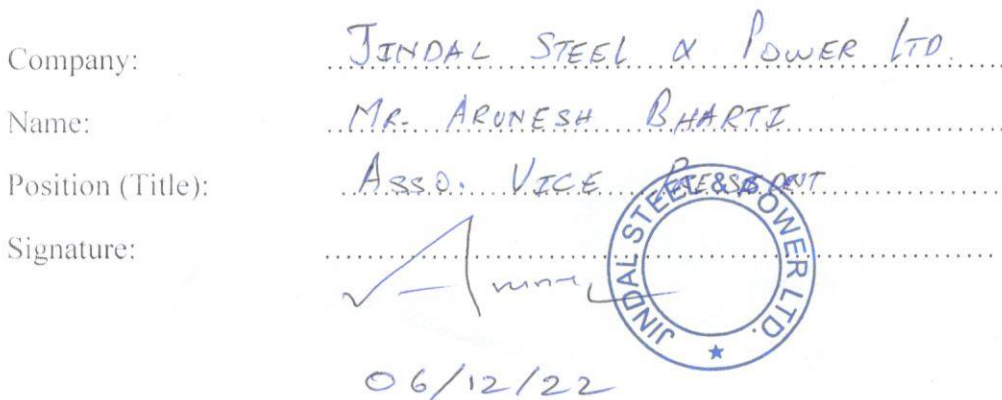 Company: JINDAL STEEL & POWER LTD.
Name: MR. ARUNESH BHARTI
Position (Title): ASSO. VICE PRESIDENT
Signature:
JINDAL STEEL & POWER LTD.
06/12/22